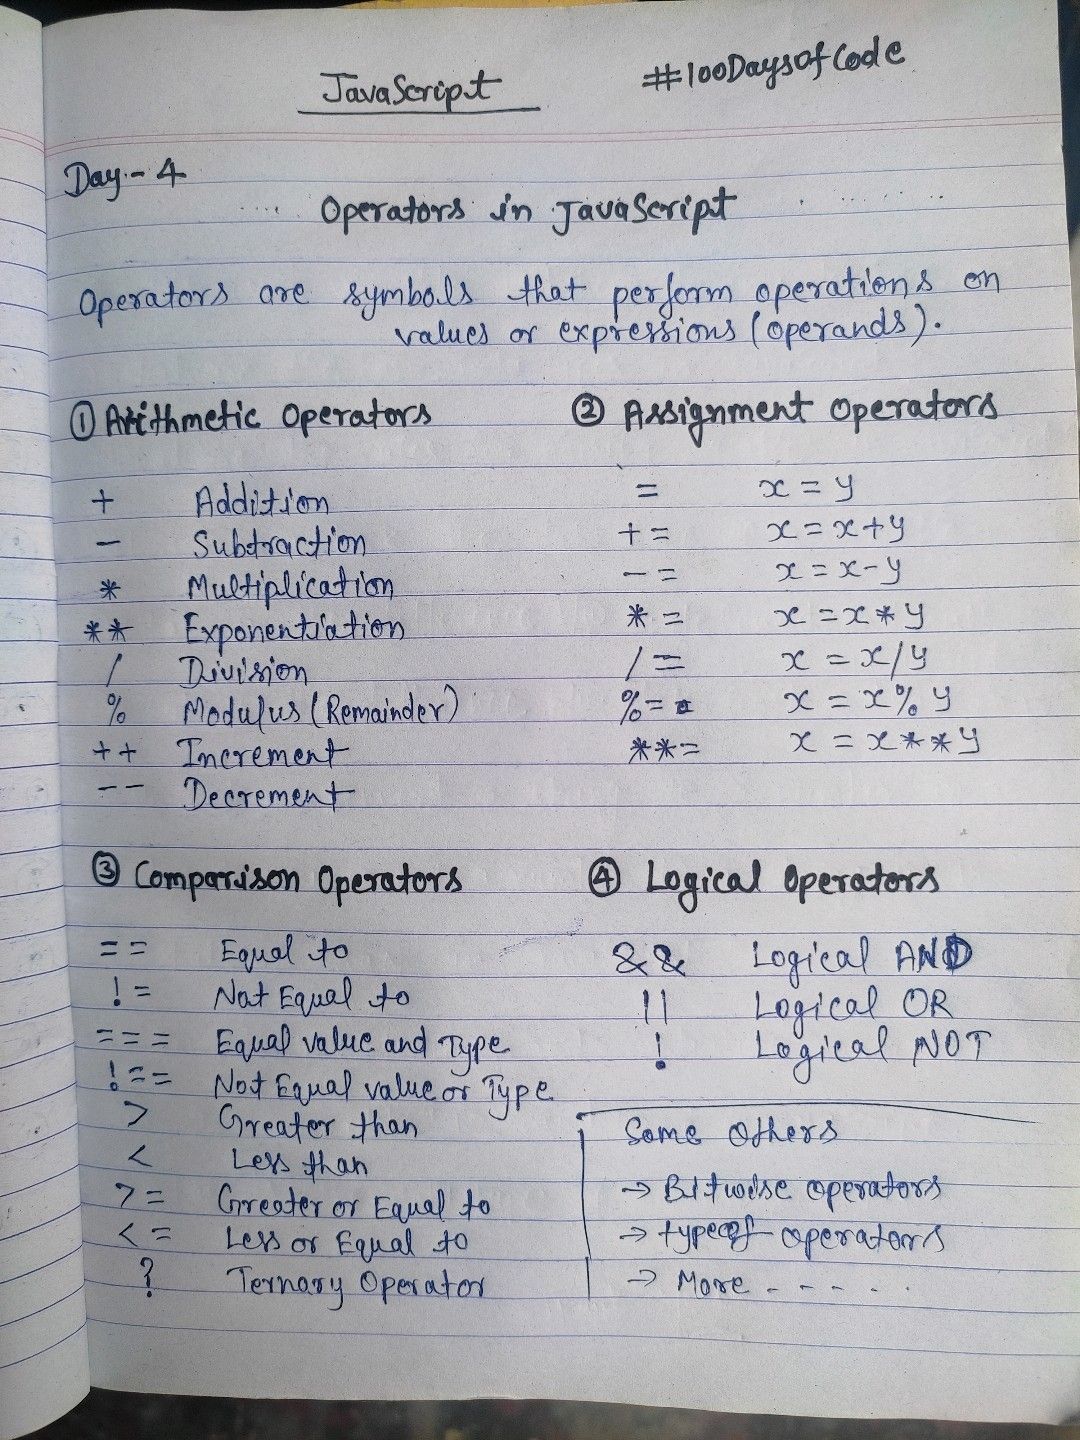 JavaScript
#100DaysOfCode
Day - 4
Operators in JavaScript
Operators are symbols that perform operations on
values or expressions (operands).
① Arithmetic Operators
+ Addition
- Subtraction
* Multiplication
** Exponentiation
/ Division
% Modulus (Remainder)
++ Increment
-- Decrement
② Assignment Operators
= x = y
+= x = x+y
-= x = x-y
*= x = x*y
/= x = x/y
%= x = x% y
**= x = x**y
③ Comparison Operators
== Equal to
!= Not Equal to
=== Equal value and Type
!== Not Equal value or Type
> Greater than
< Less than
>= Greater or Equal to
<= Less or Equal to
? Ternary Operator
④ Logical Operators
&& Logical AND
|| Logical OR
! Logical NOT
Some Others
→ Bitwise operators
→ typeof operators
→ More - - - . .